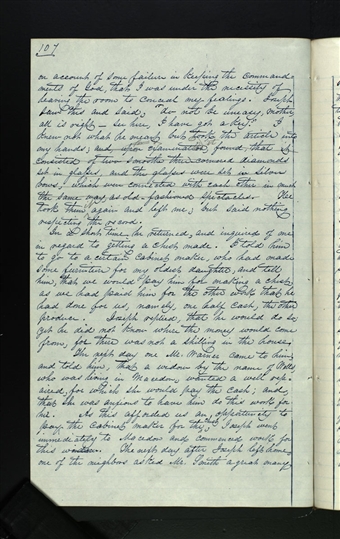 107
on account of some failure in keeping the command
ments of God, that I was under the necessity of
leaving the room to conceal my feelings. Joseph
saw this and said, "do not be uneasy, mother
all is right — see here, I have got a key". I
knew not what he meant, but took the article into
my hands, and, upon examination, found, that it
consisted of two smooth three cornered diamonds
set in glass, and the glasses were set in silver
bows, which were connected with each other in much
the same way as old fashioned spectacles. He
took them again and left me, but said nothing
respecting the record.
In a short time he returned, and inquired of me
in regard to getting a chest made. I told him
to go to a certain cabinet maker, who had made
some furniture for my oldest daughter, and tell
him, that we would pay him for making a chest,
as we had paid him for the other work that he
had done for us, namely, one half cash, the other
produce. Joseph replied, that he would do so,
yet he did not know where the money would come
from, for there was not a shilling in the house.
The next day one Mr. Warner came to him,
and told him, that a widow by the name of Wells,
who was living in Macedon, wanted a well
for which she would pay the cash; and,
that she was anxious to have him do this work for
her. As this afforded us an opportunity to
pay the cabinet maker for the chest, Joseph went
immediately to Macedon and commenced work for
this
The next day after Joseph left home,
one of the neighbors asked Mr. Smith a great many